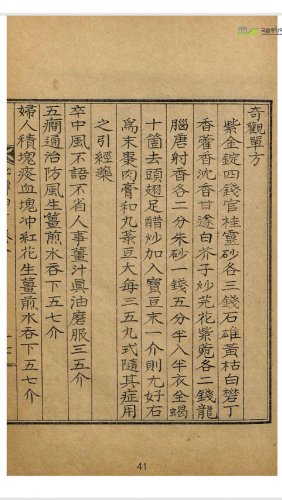 奇觀單方
紫金錠四錢官桂靈砂各三錢石雄黃枯白礬丁
香藿香沈香甘遂白芥子炒芫花紫菀各二錢龍
腦唐射香各二分朱砂一錢五分半八半衣全蝎
十箇去頭翅足醋炒加入寶豆末一介則尤好右
爲末棗肉膏和丸菉豆大每三五九式隨其症用
之引經藥
卒中風不語不省人事薑汁眞油磨服三五介
五癎通治防風生薑煎水吞下五七介
婦人積塊痰血塊冲紅花生薑煎水吞下五七介
41